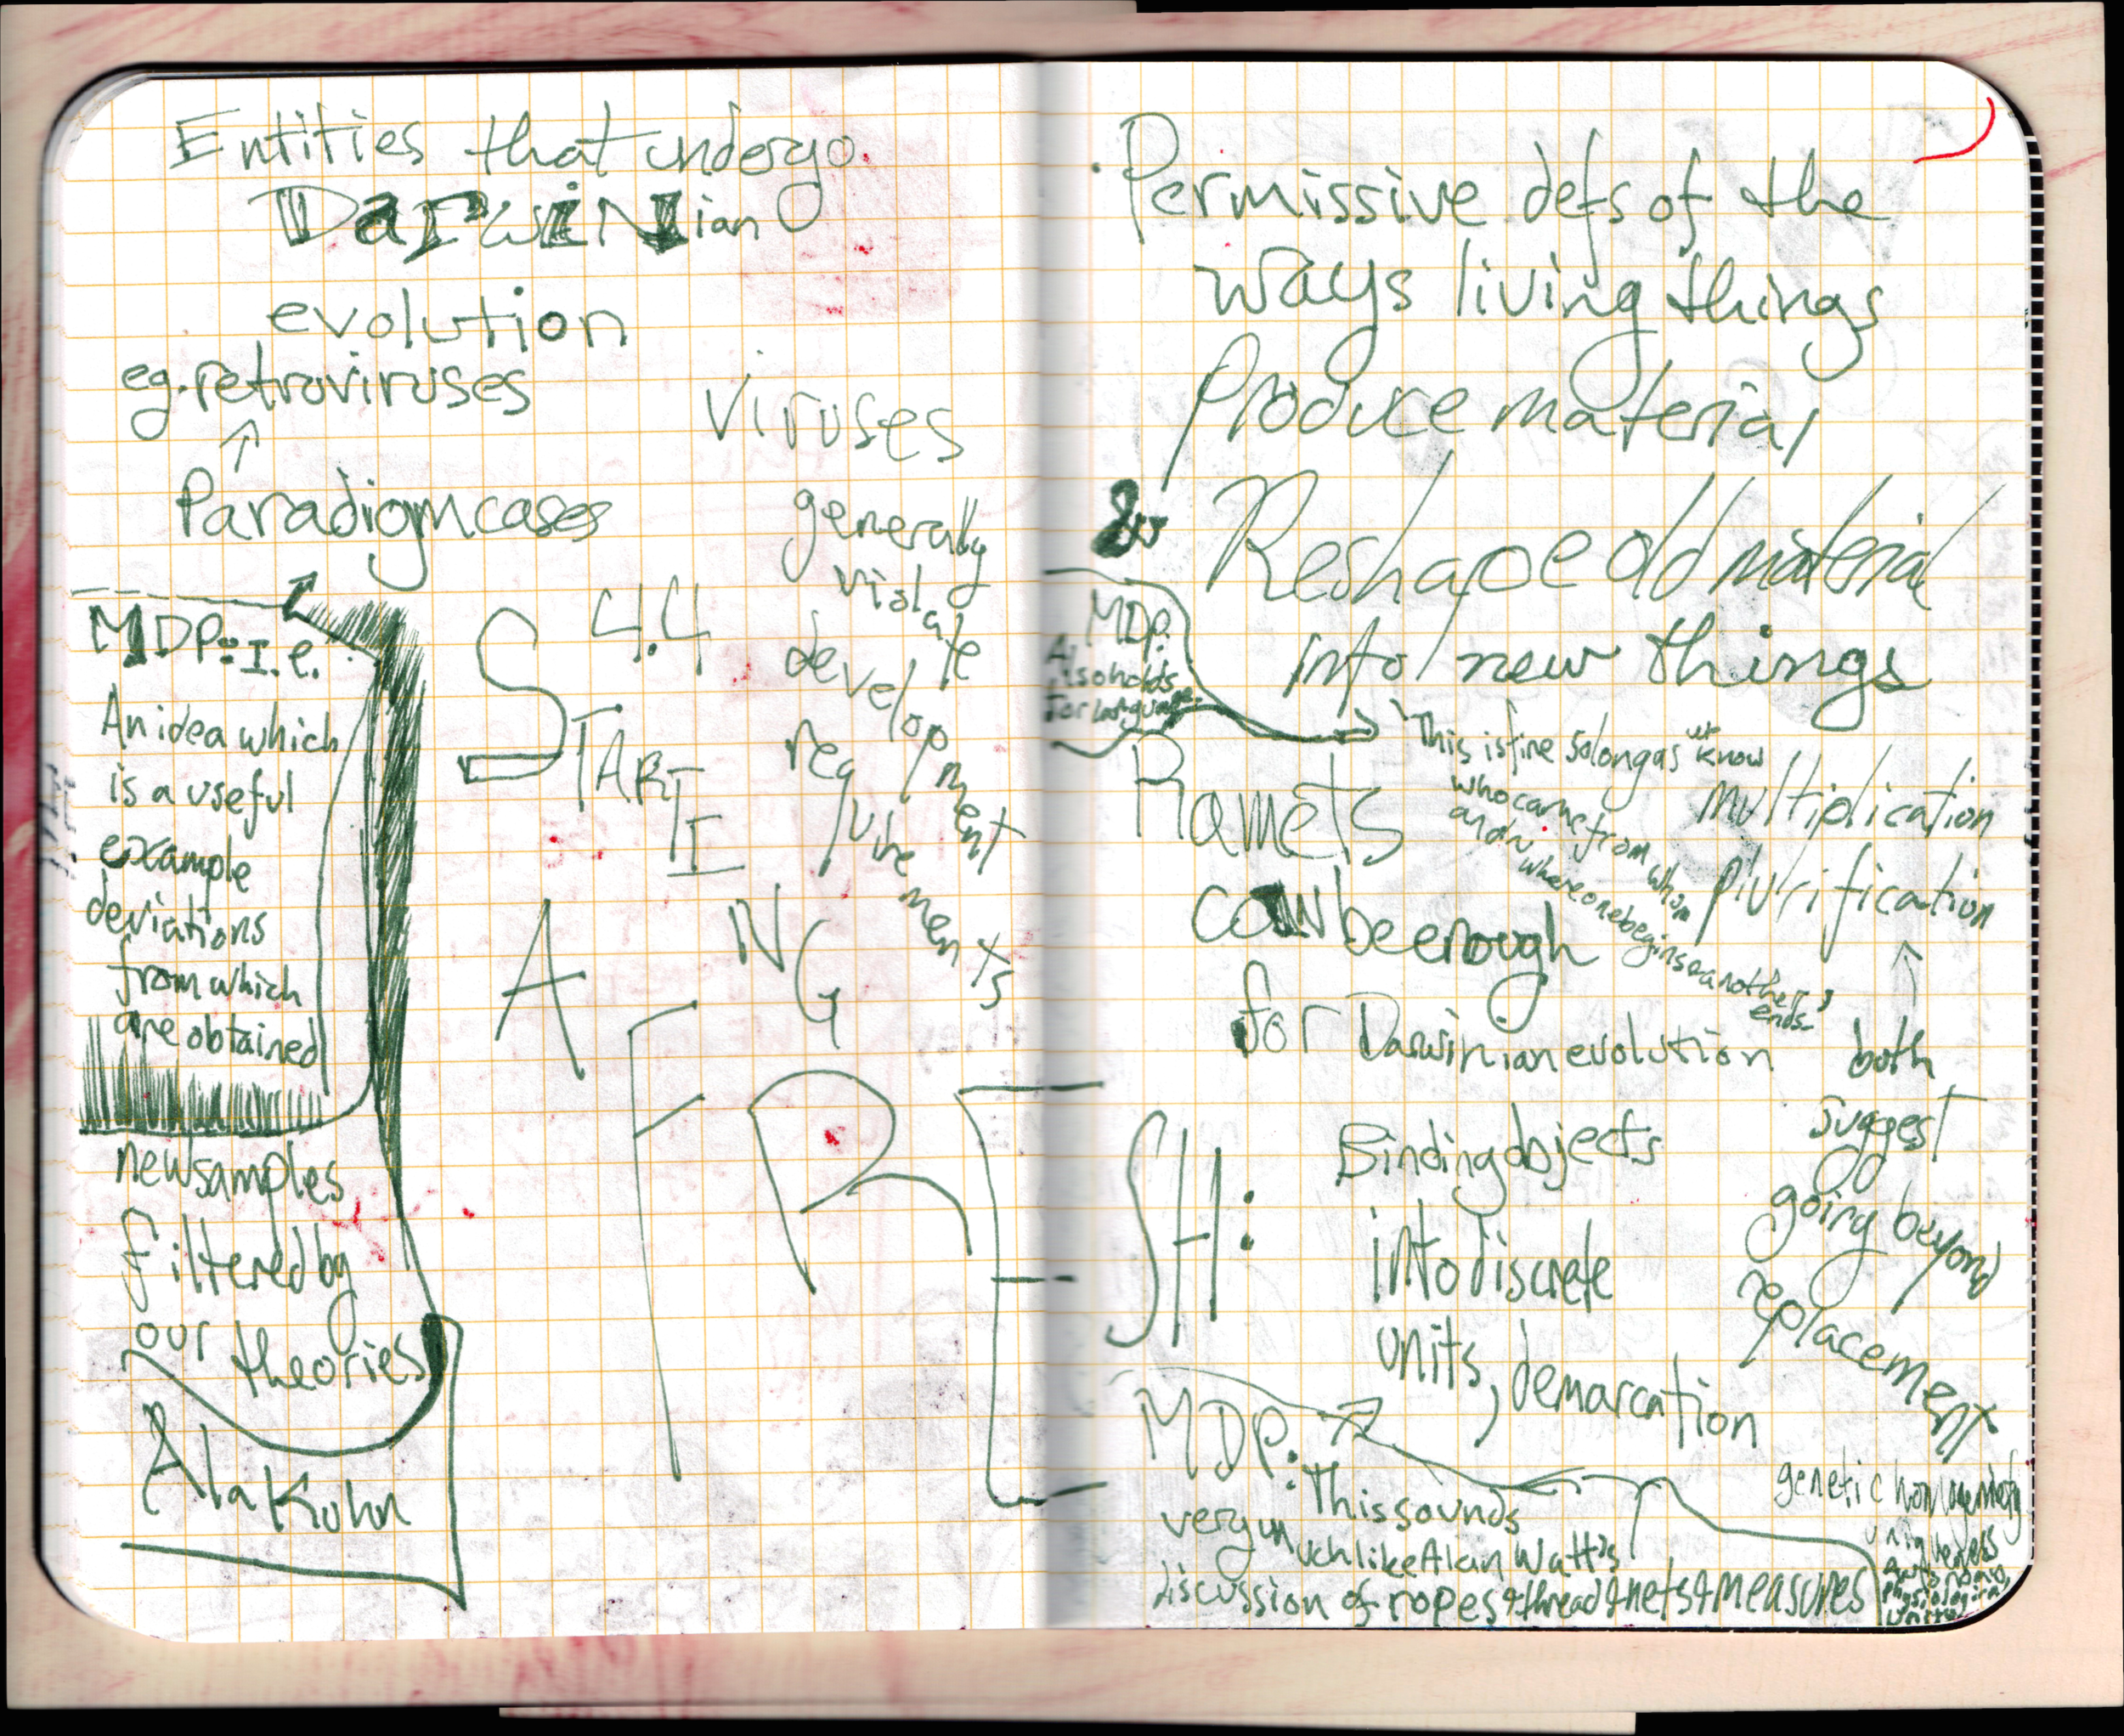 Entities that undergo
DarwiNian
evolution
eg. retroviruses
↑
Paradigm cases
MDP: I.e.
An idea which
is a useful
example
deviations
from which
are obtained
new samples
filtered by
our theories
Ala Kuhn
Viruses
generally
violate
development
requirements
4.4
STARTING
A FRESH:
Permissive defs of the
ways living things
Produce material
&
Reshape old material
into new things
MDP:
Also holds
for language
"This is fine so long as we know
who came from whom
and
where one begins & another
ends"
Ramets
can be enough
for Darwinian evolution
multiplication
plurification
↑
both
suggest
going beyond
replacement
Binding objects
into discrete
units, demarcation
MDP: This sounds
very much like Alan Watt's
discussion of ropes & thread & nets & measures
genetic homogeneity
uniqueness
autonomy
physiological
unity